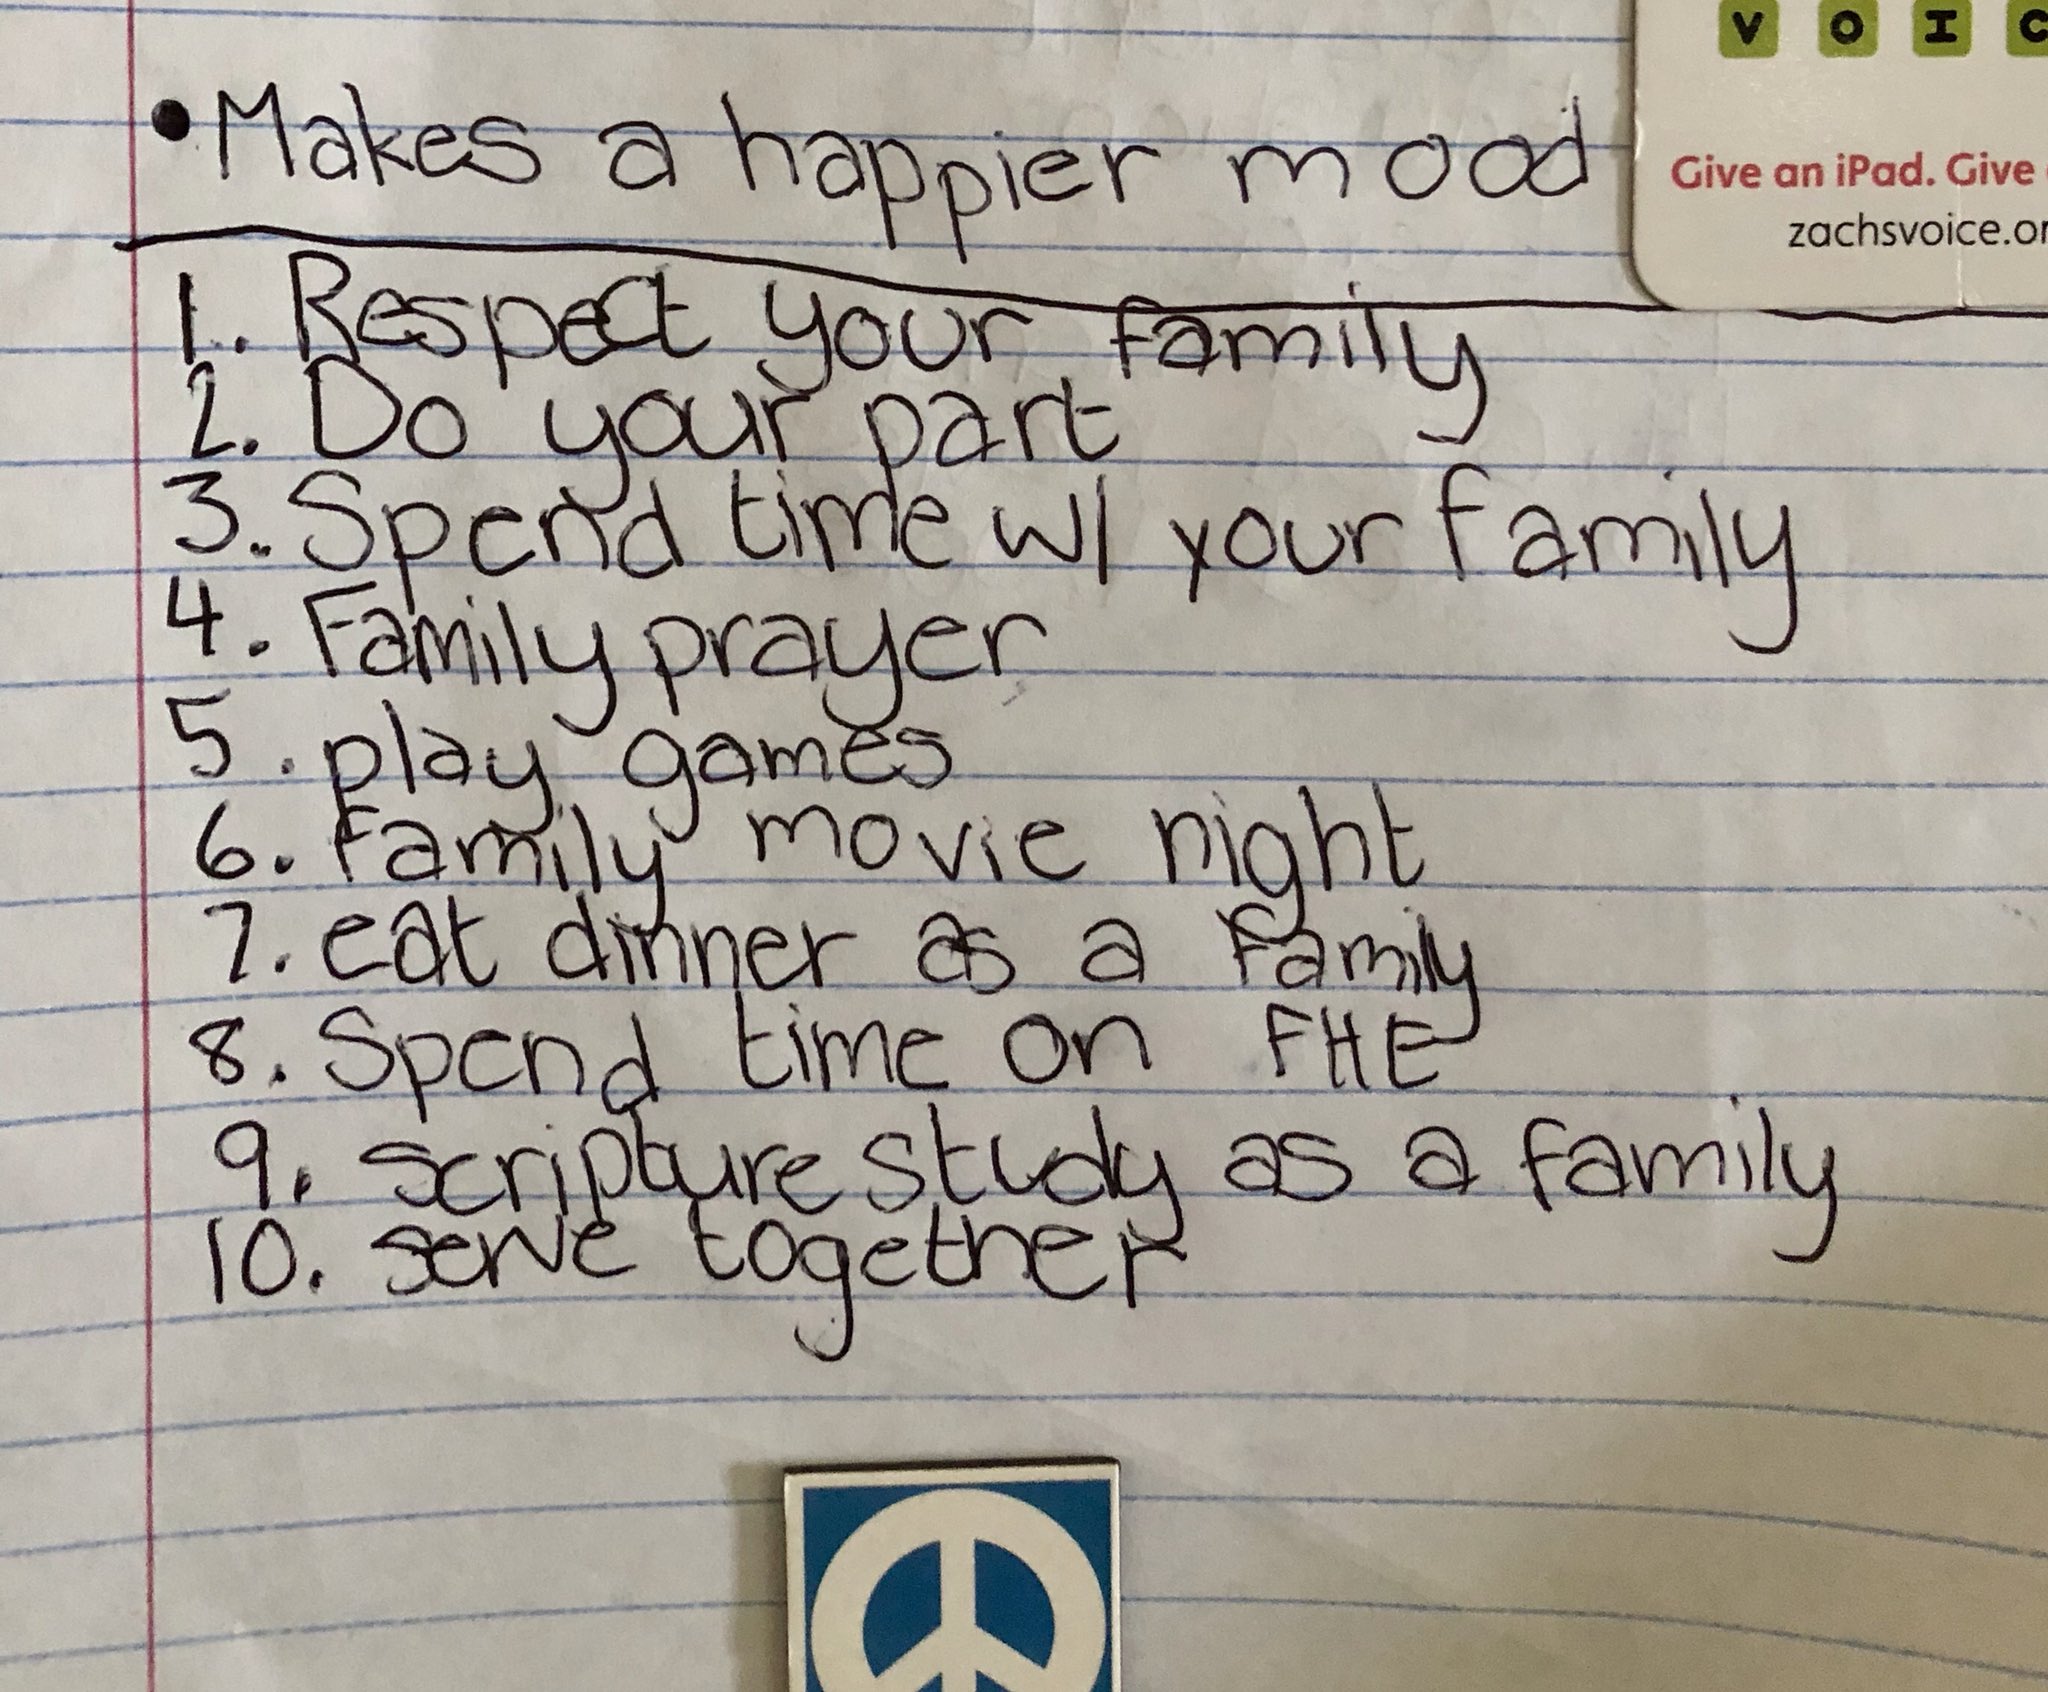 V O I C
Give an iPad. Give
zachsvoice.or
• Makes a happier mood
1. Respect your family
2. Do your part
3. Spend time w/ your family
4. Family prayer
5. play games
6. family movie night
7. eat dinner as a family
8. Spend time on FHE
9. scripture study as a family
10. serve together